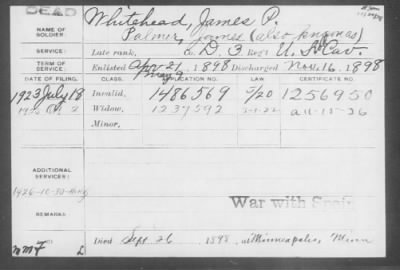 DEAD
NAME OF SOLDIER: Whitehead, James P.
Palmer, James (also known as)
SERVICE: Late rank, Co. D, 3 Reg't U.S. Cav.
TERM OF SERVICE: Enlisted Apr 21, 1898 Discharged Nov. 16, 1898
DATE OF FILING. CLASS. APPLICATION NO. LAW. CERTIFICATE NO.
1923 July 18 Invalid, 1486569 5/20 1256950
Widow, 1239592
Minor,
ADDITIONAL SERVICES:
War with Spain
REMARKS:
Died Sept. 26 1898, at Minneapolis, Minn